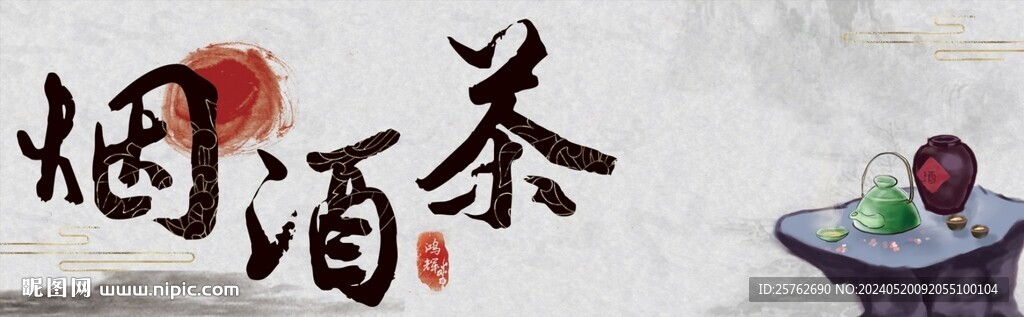 烟酒茶
鸿
酒
昵图网 www.nipic.com
ID:25762690 NO:20240520092055100104